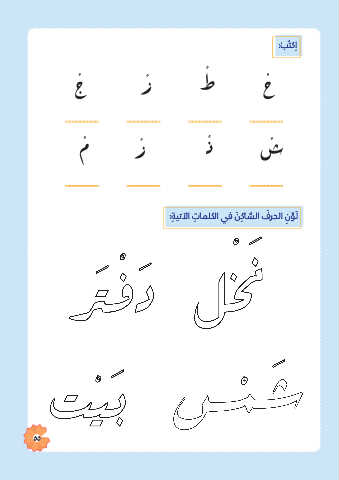 اُكْتُبْ:
خْ طْ زْ جْ
شْ ذْ رْ مْ
لَوِّنِ الحرفَ السَّاكِنَ في الكلماتِ الآتيةِ:
نَخْل دَفْتَر
شَمْس بَيْت
٥٥